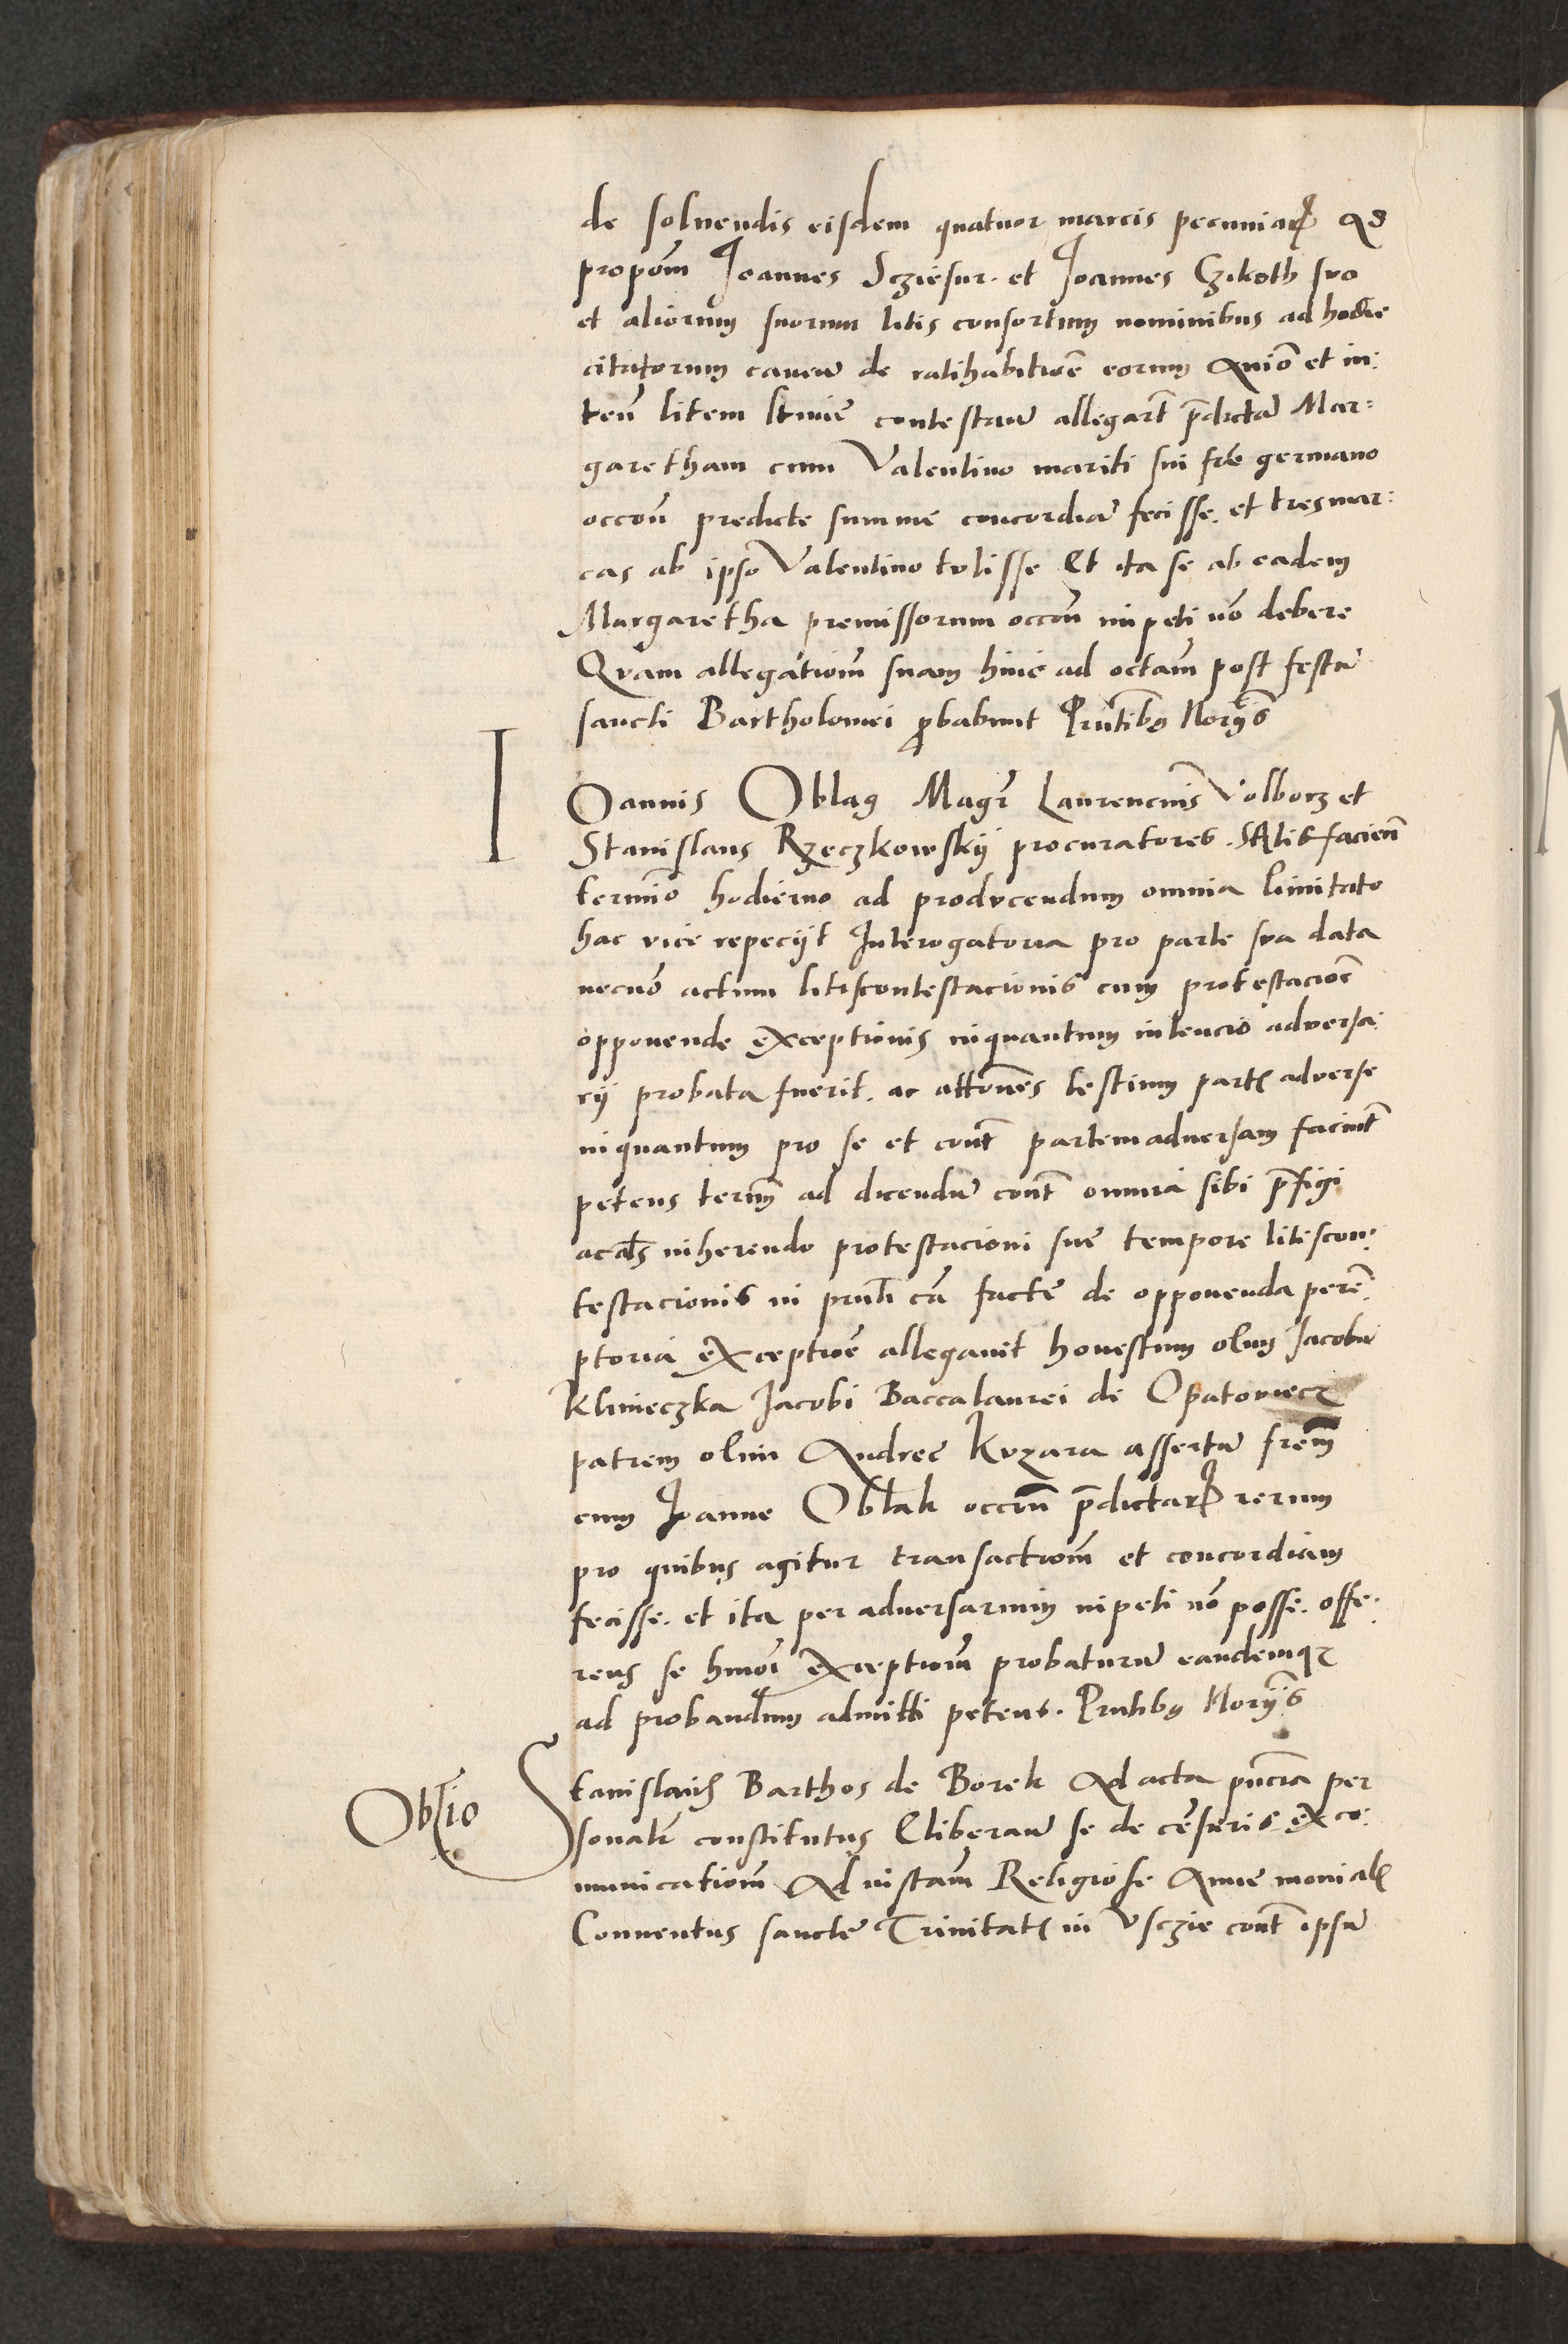 de soluendis eisdem quatuor marcis pecuniarꝝ ad
propom̄ Joannes Scziesur. et Joannes Czikoth suo
et aliorum suorum litis consortum nominibus ad hodie
citatorum caueñ de ratihabitioē eorum Aniō et in:
teñ litem ltimē contestañ allegart̄ p̄dictā Mar:
garetham cum Valentino mariti sui fr̄e germano
occoñ predicte summe concordiā fecisse. et tres mar:
cas ab ipso Valentino tulisse Et ita se ab eadem
Margaretha premissorum occoñ impeti nō debere
Quam allegatiom̄ suam hinc ad octām post festū
sancti Bartholomei ꝓbabunt Pn̄tibus Norijs
I Oannis Oblag Magr̄ Laurencius Volborz et
Stanislaus Rzeczkowskij procuratores. Satisfacieñ
termīo hodierno ad producendum omnia limitato
hac vice repecijt Interogatoria pro parte sua data
necnō actum litiscontestacionis cum protestacioē
opponende exceptionis inquantum intencio adversa:
rij probata fuerit. ac attōnes testium partis adverse
inquantum pro se et cont̄ partem adversam faciunt
petens term̄ ad dicendū cont̄ omnia sibi p̄figi
ac als̄ inherendo protestacioni sue tempore litiscon:
testacionis in pn̄ti cā facte de opponenda perē:
ptoria exceptioē allegauit honestum olim Jacobū
Klimeczka Jacobi Baccalaurei de Opatowiecz
patrem olim Andree Kuzara assertū frem̄
cum Joanne Oblak occoñ p̄dictarꝝ rerum
pro quibus agitur transactiom̄ et concordiam
fecisse. et ita per adversarium impeti nō posse. offe:
rens se hmōi exceptiom̄ probaturū eandemqz
ad probandum admitti petens. Pn̄tibus Norijs
Oblīo
Stanislaus Barthos de Borek Ad acta pn̄cia per
sonalr̄ constitutus Cliberañ se de censuris exco:
municatiom̄ Ad instām Religiose Anne monialis
Conuentus sancte Trinitatis in Usczie cont̄ ipsū